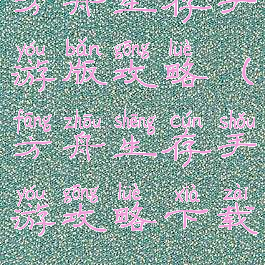 方舟生存手
yóu bǎn gōng lüè
游版攻略（
fāng zhōu shēng cún shǒu
方舟生存手
yóu gōng lüè xià zǎi
游攻略下载